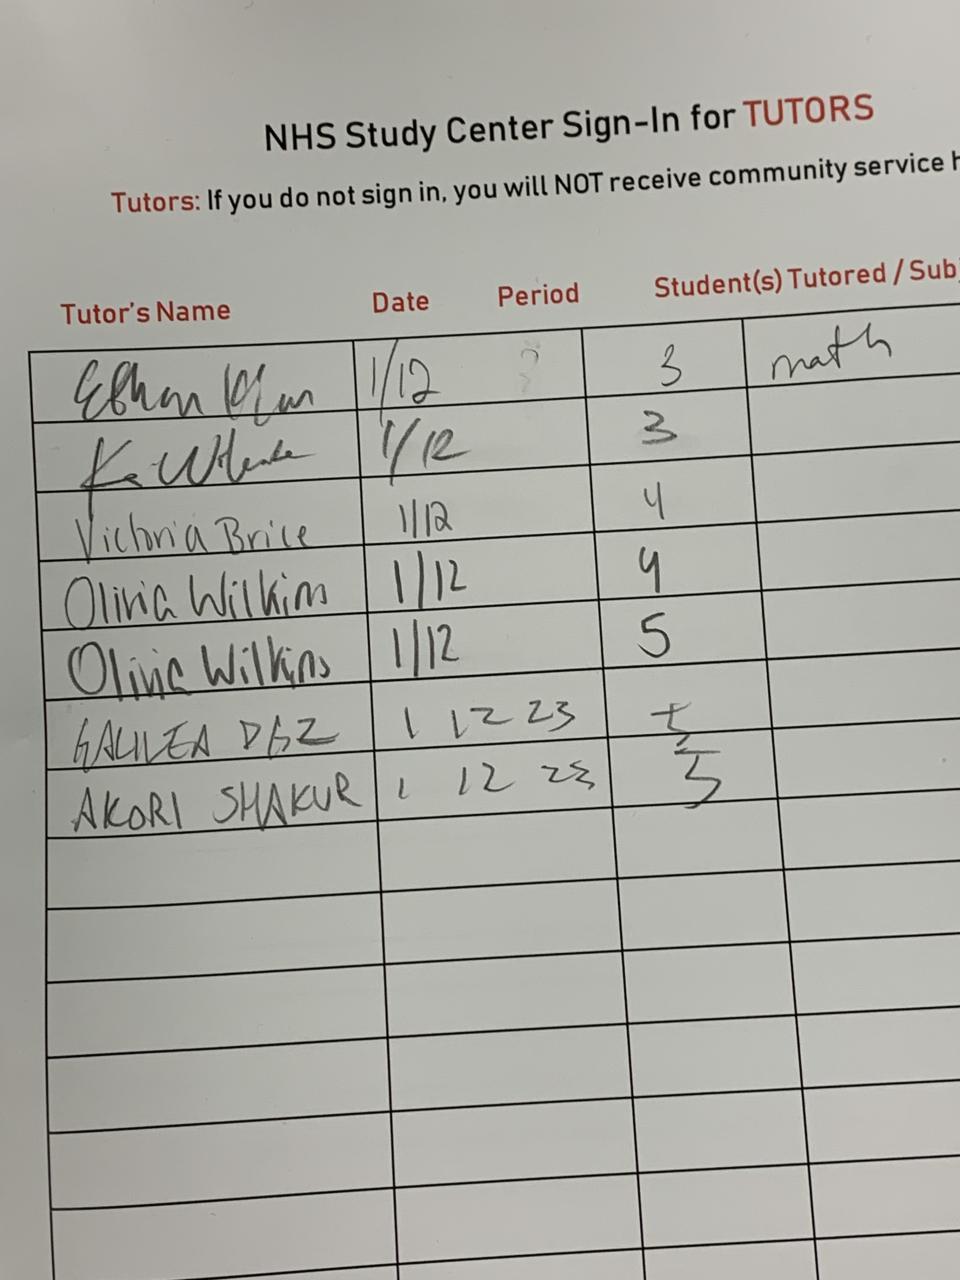 NHS Study Center Sign-In for TUTORS
Tutors: If you do not sign in, you will NOT receive community service
Tutor's Name Date Period Student(s) Tutored /
Ethan 1/12 3 math
1/12 3
Victoria Brice 1/12 4
Olivia Wilkins 1/12 4
Olivia Wilkins 1/12 5
GALILEA DGZ 1 12 23 5
AKORI SHAKUR 1 12 23 5